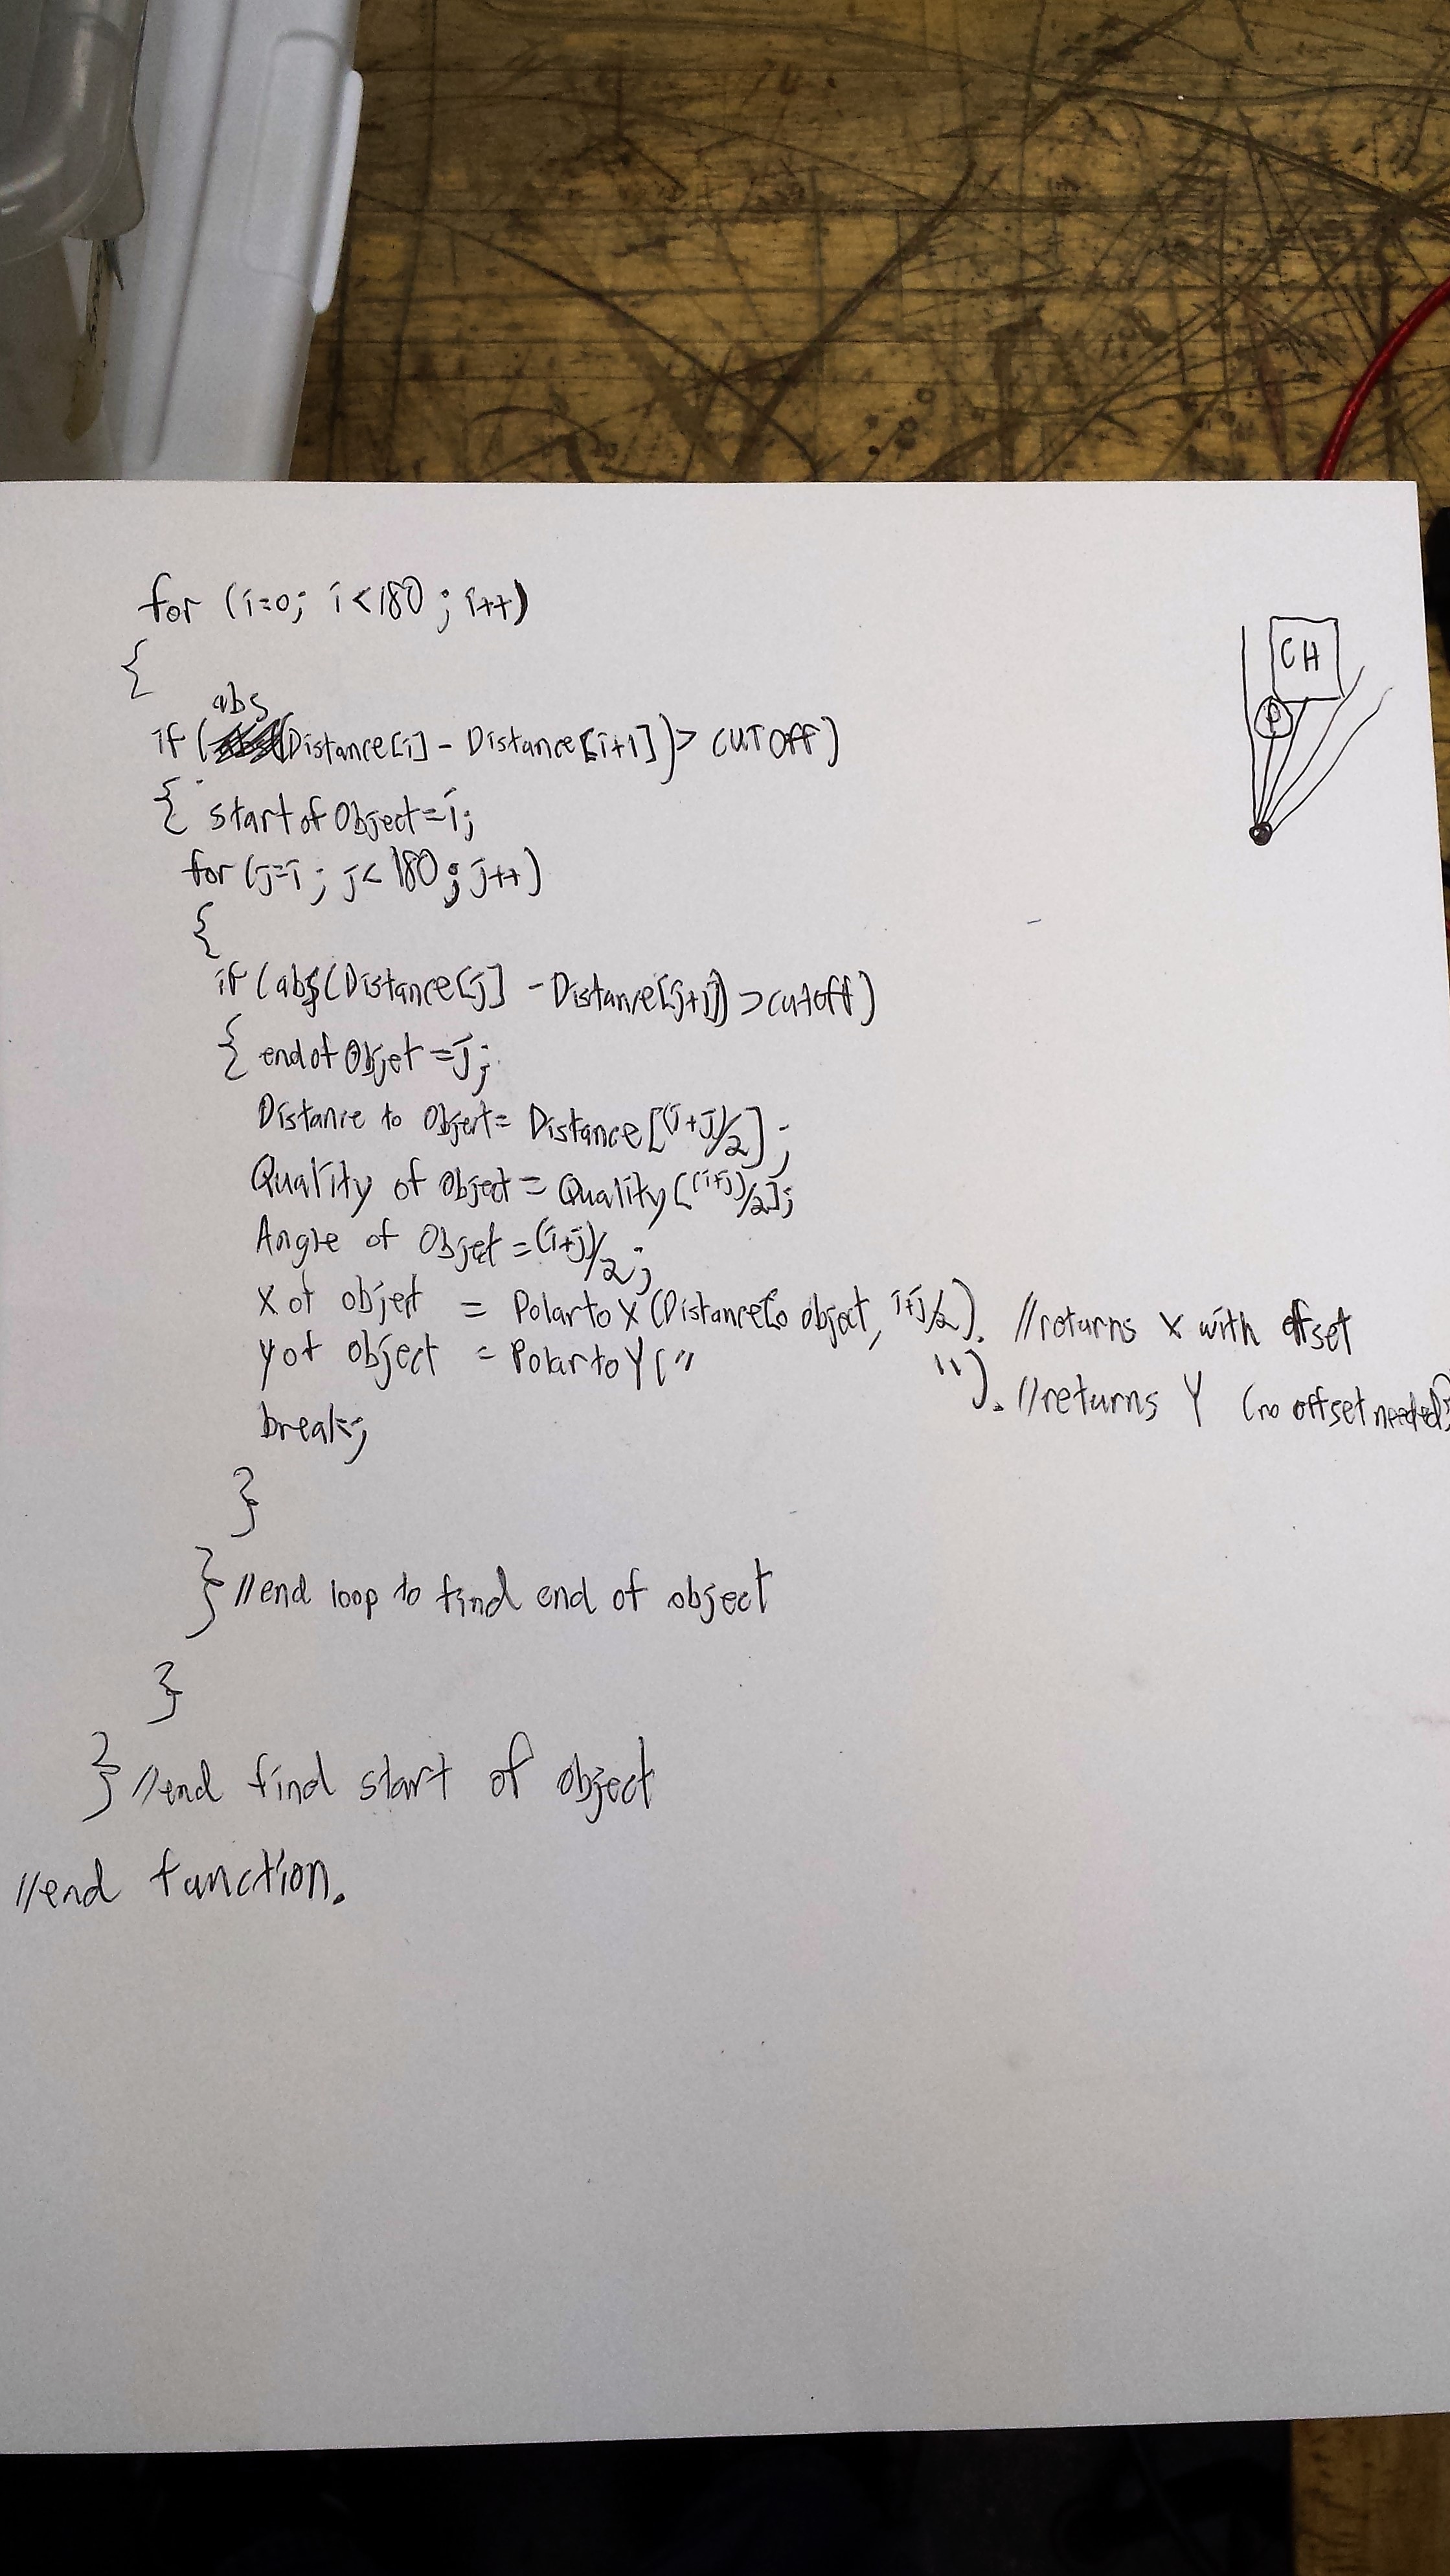 for (i=0; i<180; i++)
{
abs
if ((Distance[i] - Distance[i+1])> cutoff)
{ start of Object = i;
for (j=i; j<180; j++)
{
if (abs(Distance[j] - Distance[j+1]) > cutoff)
{ end of Objet = j;
Distance to Object = Distance[(i+j)/2];
Quality of Object = Quality[(i+j)/2];
Angle of Objet = (i+j)/2;
X of object = Polar to X (Distance to object, i+j/2). //returns X with offset
y of object = Polar to Y ( " "). //returns Y (no offset needed)
break;
}
} //end loop to find end of object
}
} //end find start of object
//end function.
CH
P